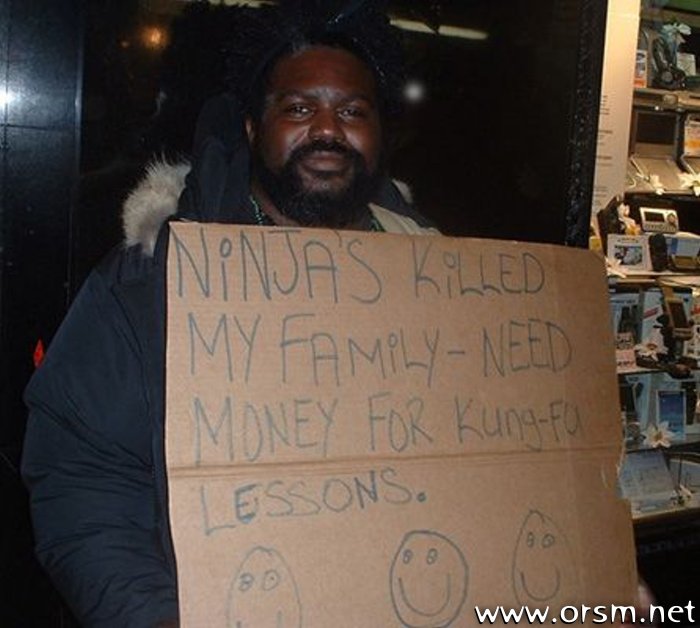 NiNJA'S KiLLED
MY FAMiLY - NEED
MONEY FOR KUNG-FU
LESSONS.
www.orsm.net